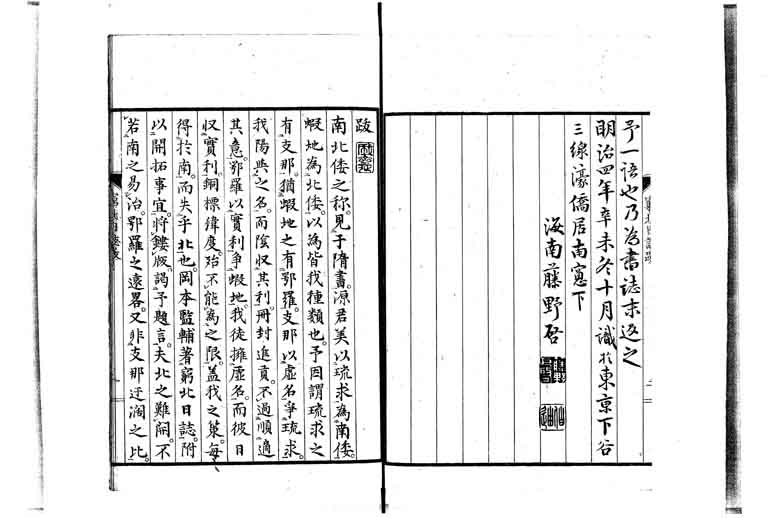 予一語也乃為書誌末返之
明治四年辛未冬十月識於東京下谷
三線濠僑居南窓下
海南藤野啓
跋
南北倭之称。見于隋書。源君美以琉求為南倭。
蝦地為北倭。以為皆我種類也。予因謂琉求之
有支那。猶蝦地之有鄂羅。支那以虚名争琉求。
我陽与之名。而陰収其利。冊封進貢。不過順適
其意。鄂羅以実利争蝦地。我徒擁虚名。而彼日
収実利。銅標緯度。殆不能為之限。蓋我之策。毎
得於南。而失乎北也。岡本監輔著窮北日誌。附
以開拓事宜。将鏤版。謁予題言。夫北之難開。不
若南之易治。鄂羅之遠畧。又非支那迂濶之比。